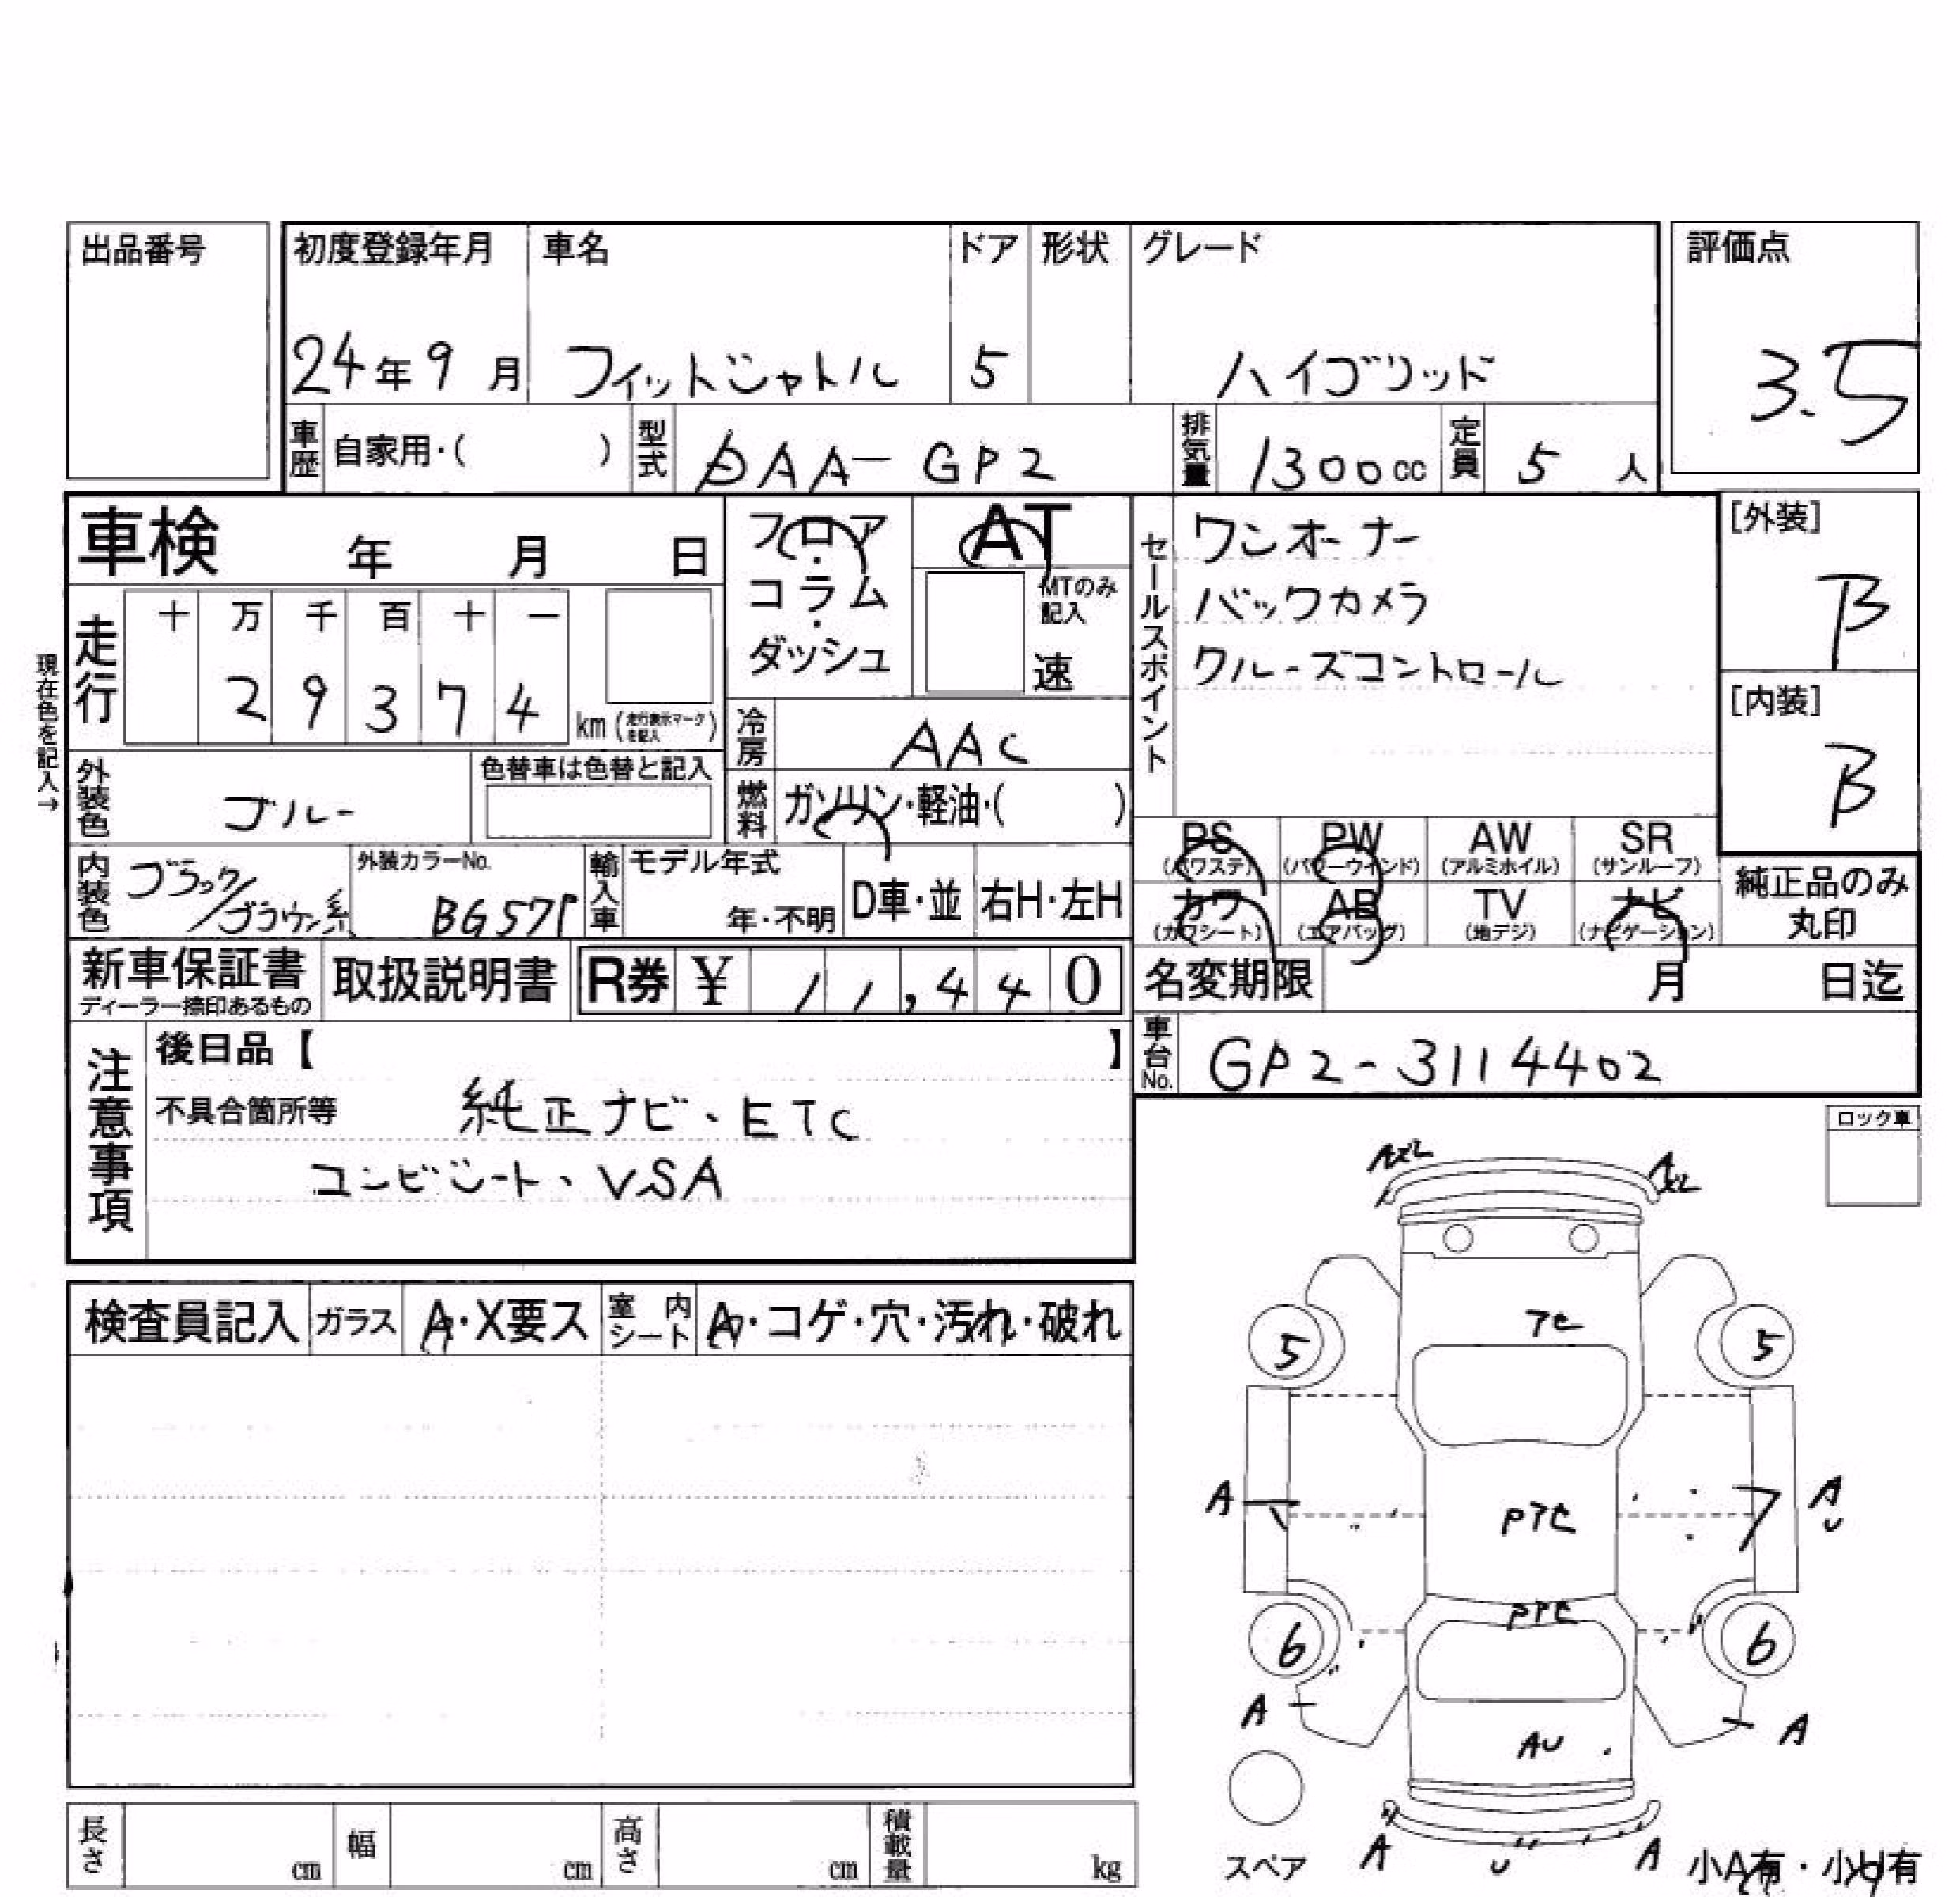 出品番号
初度登録年月 車名 ドア 形状 グレード 評価点
24年9月 フィットシャトル 5 ハイブリッド 3.5
車歴 自家用・( ) 型式 DAA-GP2 排気量 1300cc 定員 5人
車検 年 月 日 フロア・コラム・ダッシュ AT
MTのみ記入
速
セールスポイント
ワンオーナー
バックカメラ
クルーズコントロール
[外装]
B
[内装]
B
現在色を記入→
走行 十 万 千 百 十 一
2 9 3 7 4 km (走行表示マークを記入)
冷房 AAC
外装色 ブルー 色替車は色替と記入
燃料 ガソリン・軽油・( )
PS (パワステ) PW (パワーウインド) AW (アルミホイル) SR (サンルーフ)
カワ (カワシート) AB (エアバッグ) TV (地デジ) ナビ (ナビゲーション)
純正品のみ丸印
内装色 ブラック/ブラウン系 外装カラーNo. BG57P 輸入車 モデル年式 年・不明 D車・並 右H・左H
新車保証書 ディーラー捺印あるもの 取扱説明書 R券 ¥ 11,440
名変期限 月 日迄
車台No. GP2-3114402
注意事項
後日品【 】
不具合箇所等 純正ナビ、ETC
コンビシート、VSA
ロック車
検査員記入 ガラス A・X要ス 室内シート A・コゲ・穴・汚れ・破れ
AXL
AXL
アモ
5 5
A
Pアモ
A
U
Pアモ
6 6
A A
AU
A U A
スペア
小A有・小U有
長さ cm 幅 cm 高さ cm 積載量 kg